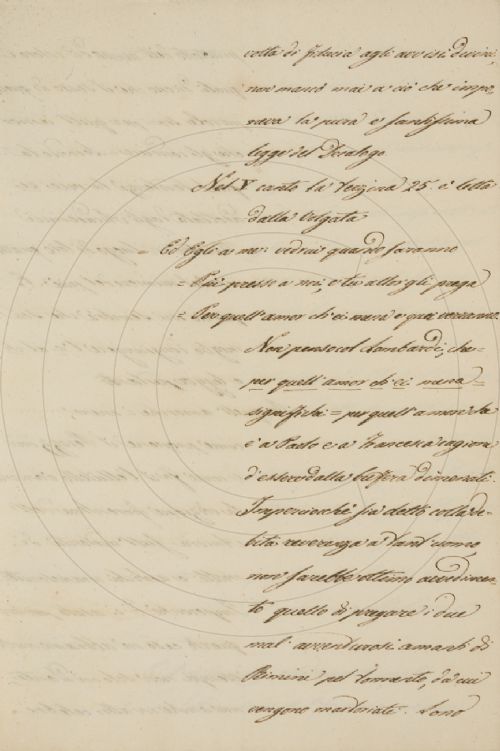 colta di fiducia agli avvisi divini,
non mancò mai a ciò che impo-
neva la pura e santissima
legge del Decalogo
Nel V canto la terzina 25. è letta
dalla Volgata
= Ed Egli a me: vedrai quando saranno
= Più presso a noi, e tu allor gli prega
= Per quell'amor ch'ei mena e quei verranno.
Non penso col Lombardi, che =
per quell'amor ch'ei mena =
significhi = per quell'amor che
è a Paolo e a Francesca cagione
d'essere dalla bufera dimenati.
Imperciocchè sia detto colla de-
bita reverenza a tant'uomo
non sarebbe ottimo avvedimen-
to quello di pregare i due
mal avventurosi amanti di
Rimini pel tormento, da cui
vengono martoriati. Sono